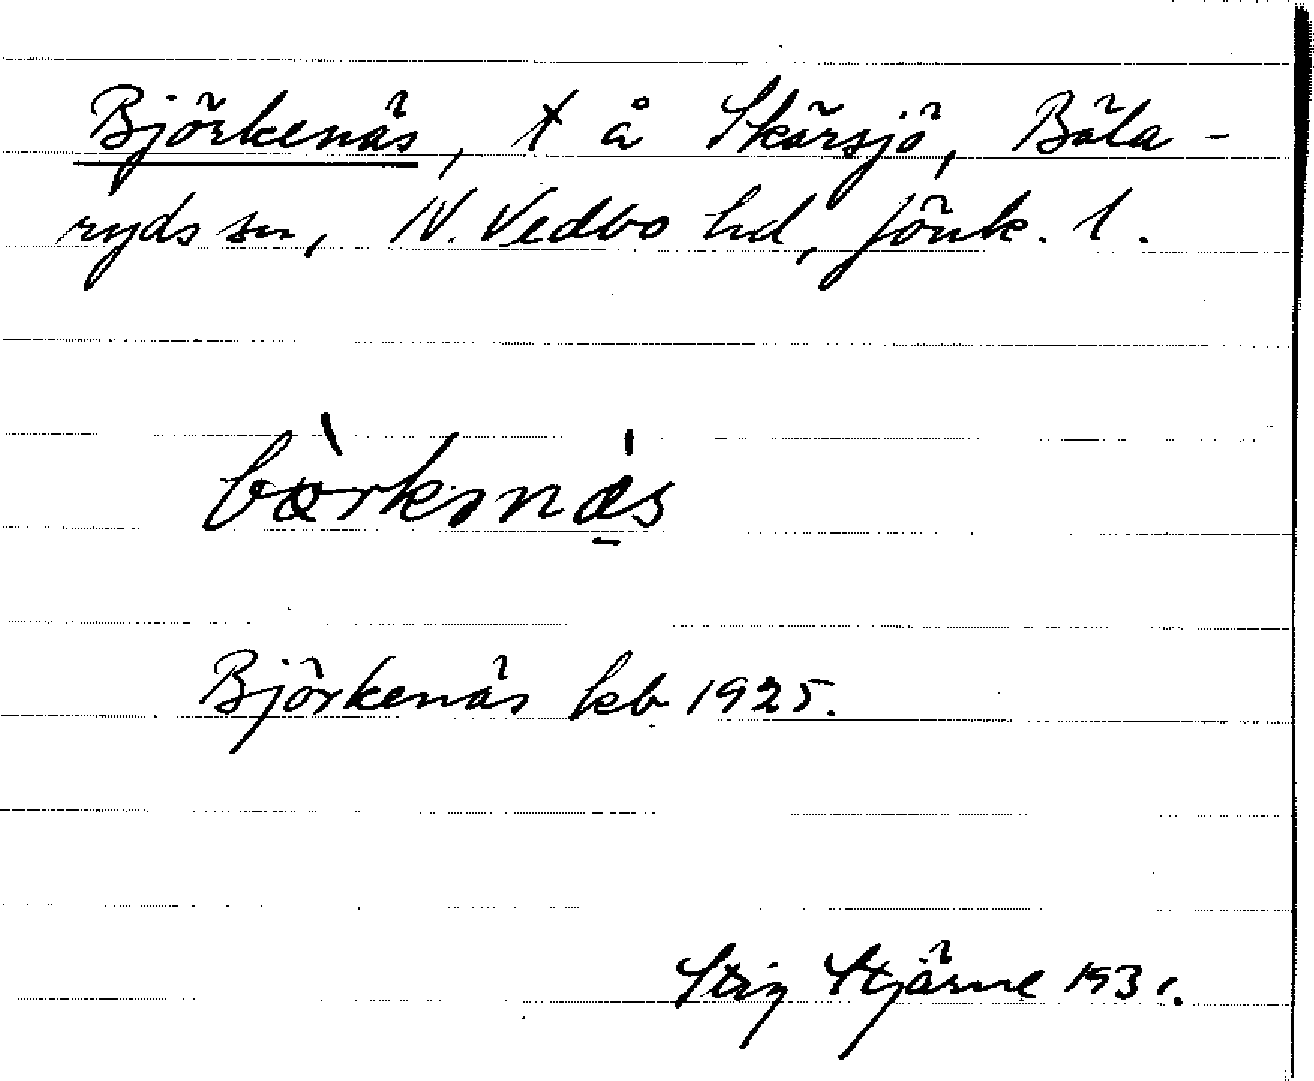 Björkenäs, t å Skärsjö, Bäla-
ryds sn, N. Vedbo hd, Jönk. l.
bø̀rkənä́s
Björkenäs kb 1925.
Stig Stjärne 1931.